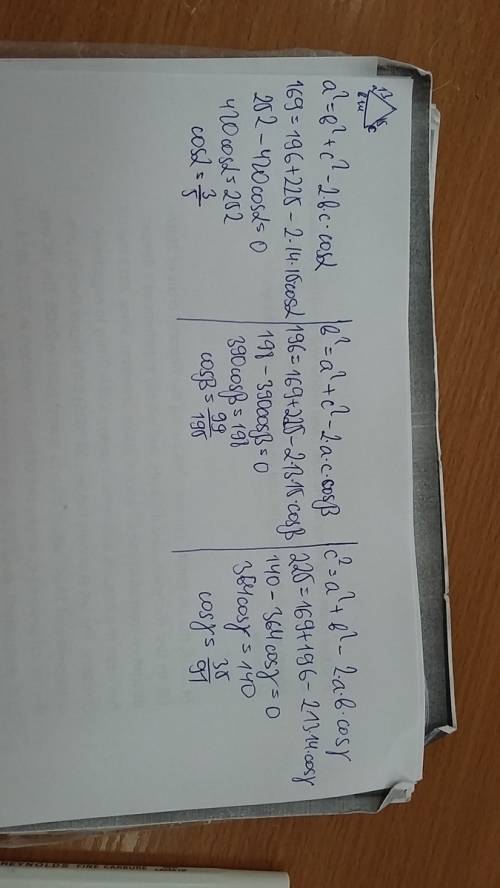 13 15 c
b 14
a² = b² + c² - 2·bc·cosα
169 = 196 + 225 - 2·14·15cosα
252 - 420cosα = 0
420cosα = 252
cosα = 3/5
b² = a² + c² - 2·a·c·cosβ
196 = 169 + 225 - 2·13·15·cosβ
198 - 390cosβ = 0
390cosβ = 198
cosβ = 99/195
c² = a² + b² - 2·a·b·cosγ
225 = 169 + 196 - 2·13·14·cosγ
140 - 364cosγ = 0
364cosγ = 140
cosγ = 35/91